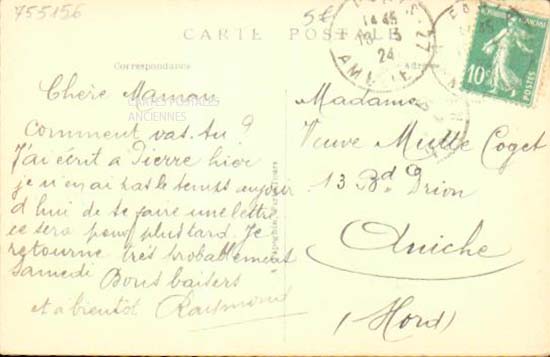 755156
5€
CARTE POSTALE
Correspondance
CARTES POSTALES
ANCIENNES
Chère Maman
Comment vas-tu ?
J'ai écrit à Pierre hier
je n'en ai pas le temps aujour
d'hui de te faire une lettre
ce sera pour plus tard. Je
retourne très probablement
samedi Bons baisers
et à bientôt Raymond
14 45
18 - 3
24
10c
POSTES
Madame
Veuve Mutte Coget
13 Bd Drion
Aniche
(Nord)